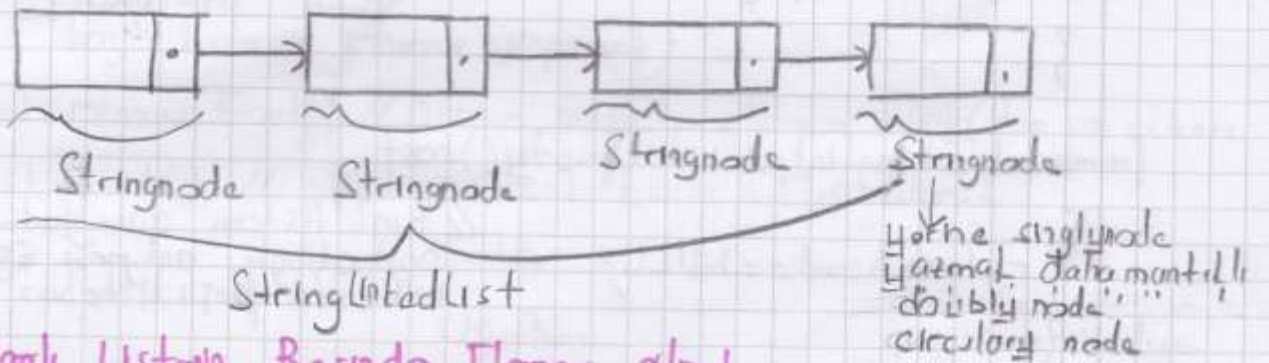 Stringnode Stringnode Stringnode Stringnode
StringLinkedList
yerine singlynode
yazmak daha mantıklı
doubly node " " "
circulary node
Listenin Başında Eleman